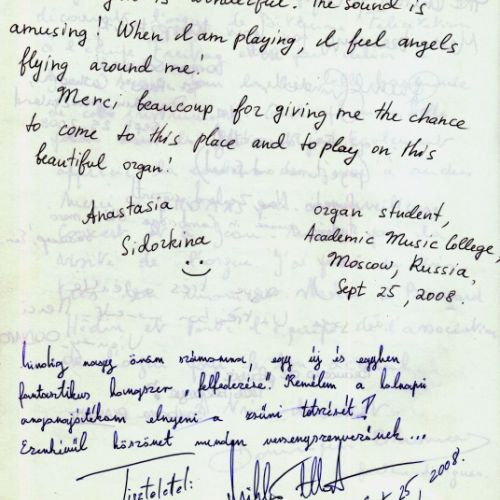 is wonderful. The sound is
amusing! When I am playing, I feel angels
flying around me!
Merci beaucoup for giving me the chance
to come to this place and to play on this
beautiful organ!
Anastasia
Sidorkina
organ student,
Academic Music College,
Moscow, Russia,
Sept 25, 2008.
Mindig nagy öröm számomra, egy új és egyben
fantasztikus hangszer felfedezése. Remélem a holnapi
orgonajátékom elnyeri a zsűri tetszését!
Ezenkívül köszönet minden versenyszervezőnek...
Tisztelettel:
25, 2008.